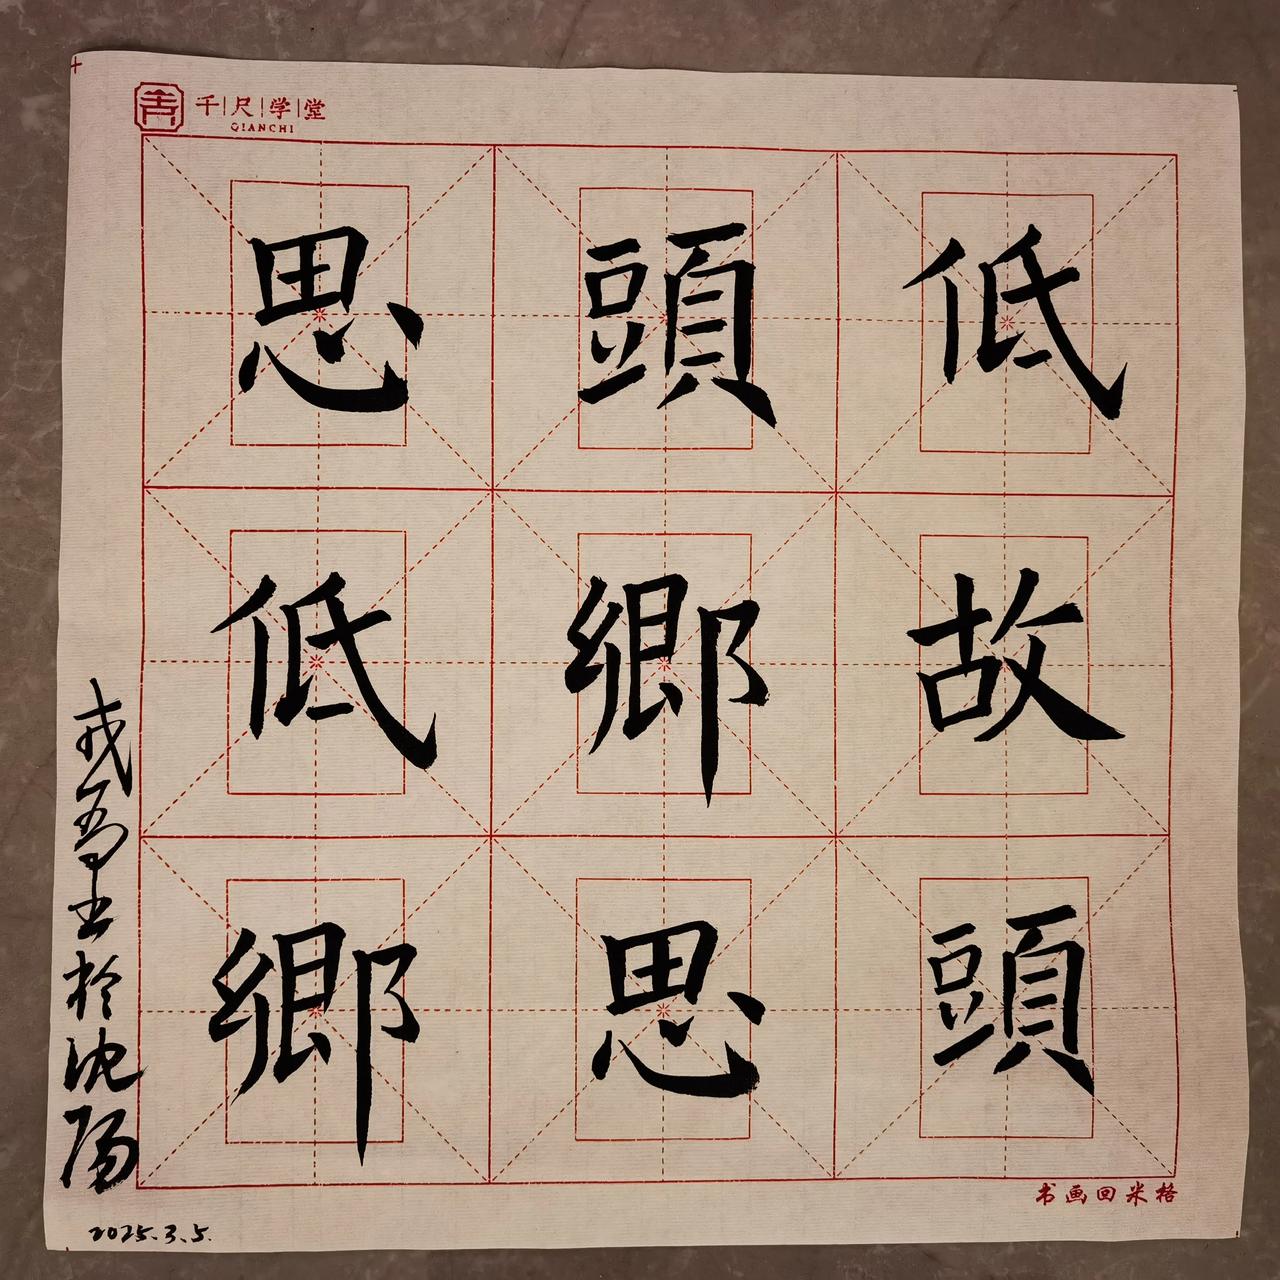 千尺学堂
QIANCHI
低頭思
故鄉低
頭思鄉
於沈陽
2025.3.5.
书画回米格